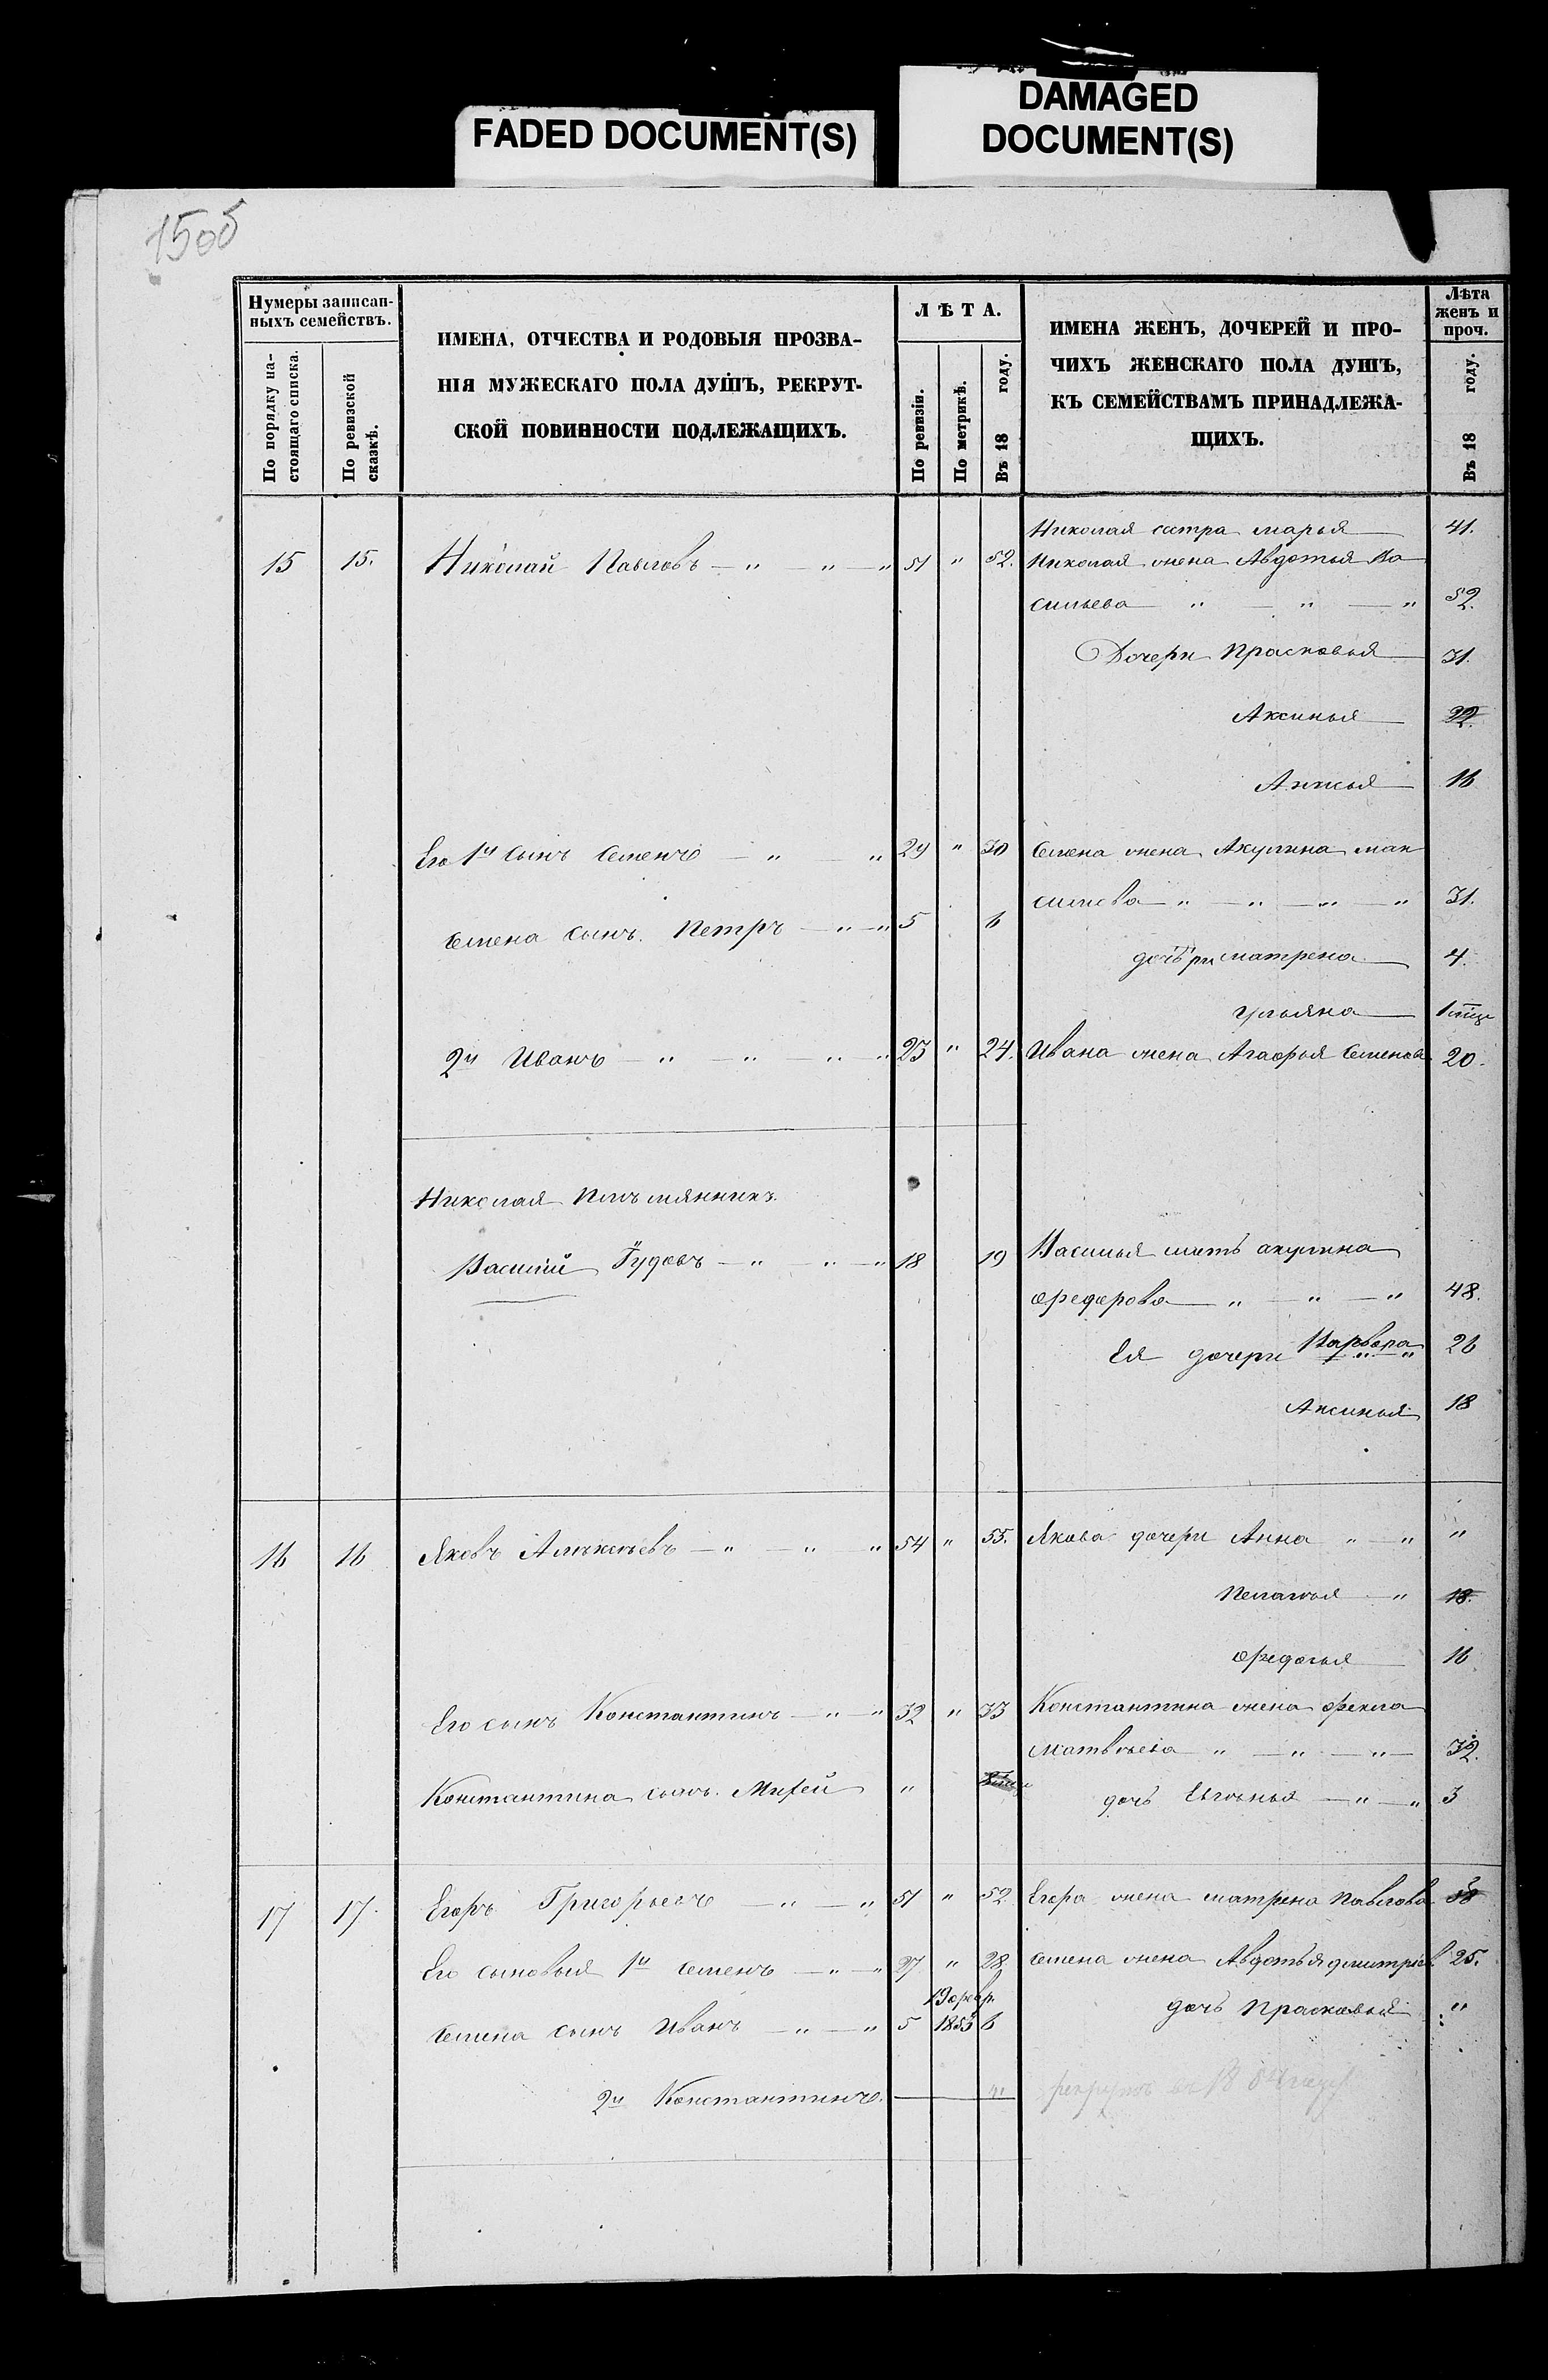 FADED DOCUMENT(S)
DAMAGED
DOCUMENT(S)
150б
Нумеры записан-
ныхъ семействъ.
По порядку на-
стоящаго списка.
По ревизской
сказкѣ.
ИМЕНА, ОТЧЕСТВА И РОДОВЫЯ ПРОЗВА-
НІЯ МУЖЕСКАГО ПОЛА ДУШЪ, РЕКРУТ-
СКОЙ ПОВИННОСТИ ПОДЛЕЖАЩИХЪ.
ЛѢТА.
По ревизіи.
По метрикѣ.
Въ 18 году.
ИМЕНА ЖЕНЪ, ДОЧЕРЕЙ И ПРО-
ЧИХЪ ЖЕНСКАГО ПОЛА ДУШЪ,
КЪ СЕМЕЙСТВАМЪ ПРИНАДЛЕЖА-
ЩИХЪ.
Лѣта
женъ и
проч.
Въ 18 году.
Николая сестра Марья 41.
15 15. Николай Павловъ — " — " — " 51 " 52. Николая жена Авдотья Ва
сильева — " — " — " 52.
Дочери Прасковья 31.
Аксинья 22.
Анисья 16
Его 1й сынъ Семенъ — " — " 29 " 30 Семена жена Акулина Мак
симова — " — " — " — " 31.
Семена сынъ. Петръ — " — " 5 6
дочѣри Матрена 4.
Ульяна
2й Иванъ — " — " — " — " 23 " 24. Ивана жена Агафья Семенова 20.
Николая племянникъ
Василій Гудовъ — " — " — " 18 19 Василья мать Акулина
Федорова — " — " — " 48.
Ея дочери Варвара 26
Аксинья 18
16 16 Яковъ Алексѣевъ — " — " — " 54 " 55. Якова дочери Анна " — " "
Пелагѣя — " 18.
Федосья 16
Его сынъ Константинъ — " — " 32 " 33 Константина жена Фекла
Матвѣева " — " — " — 32.
Константина сынъ. Михей "
дочь Евгѣнья — " — " 3
17 17. Егоръ Григорьевъ — " — " 51 " 52 Егора жена Матрена Павлова
Его сыновья 1й Семенъ — " — " 27 " 28 Семена жена Авдотья Дмитріев 25.
19 февр.
Семена сынъ Иванъ — " — " 5 1853 6 дочь Прасковья "
2й Константинъ. — "